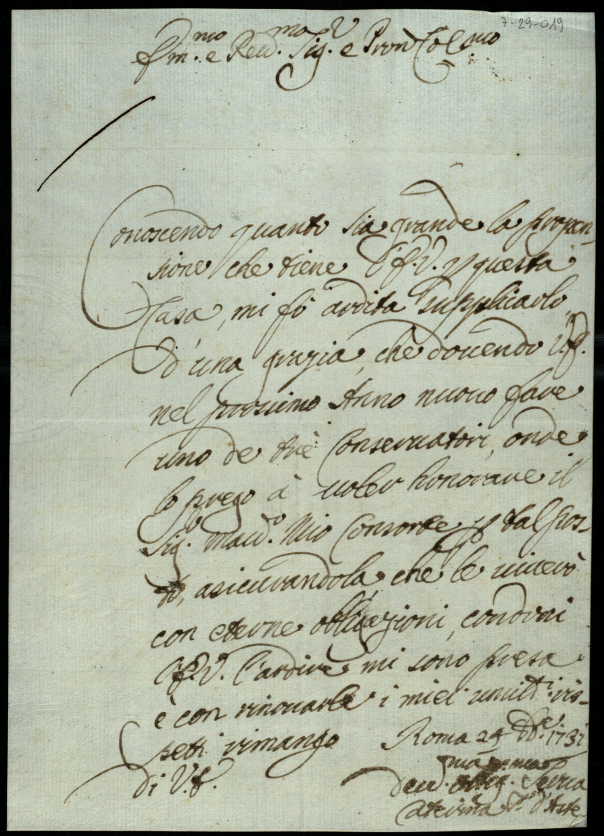 7-29-019
Em.mo e Rev.mo Sig.r e Pron Col.mo
Conoscendo quanto sia grande la propen-
sione che tiene l'E.V. p questa
Casa, mi fò ardita supplicarlo
d'una grazia, che dovendo V.E.
nel prossimo Anno nuovo fare
uno de trè Conservatori, onde
lo prego à voler honorare il
Sig. March. Mio Consorte p tal pos-
to, asicurandola che le viverò
con eterne obligazioni, condoni
l'E.V. l'ardire mi sono presa
e con rinovarle i miei umili ris-
petti rimango Roma 29 Xbre 1731
di V.E.
Dev.ma Oblig.ma Serva
Caterina d'Aste